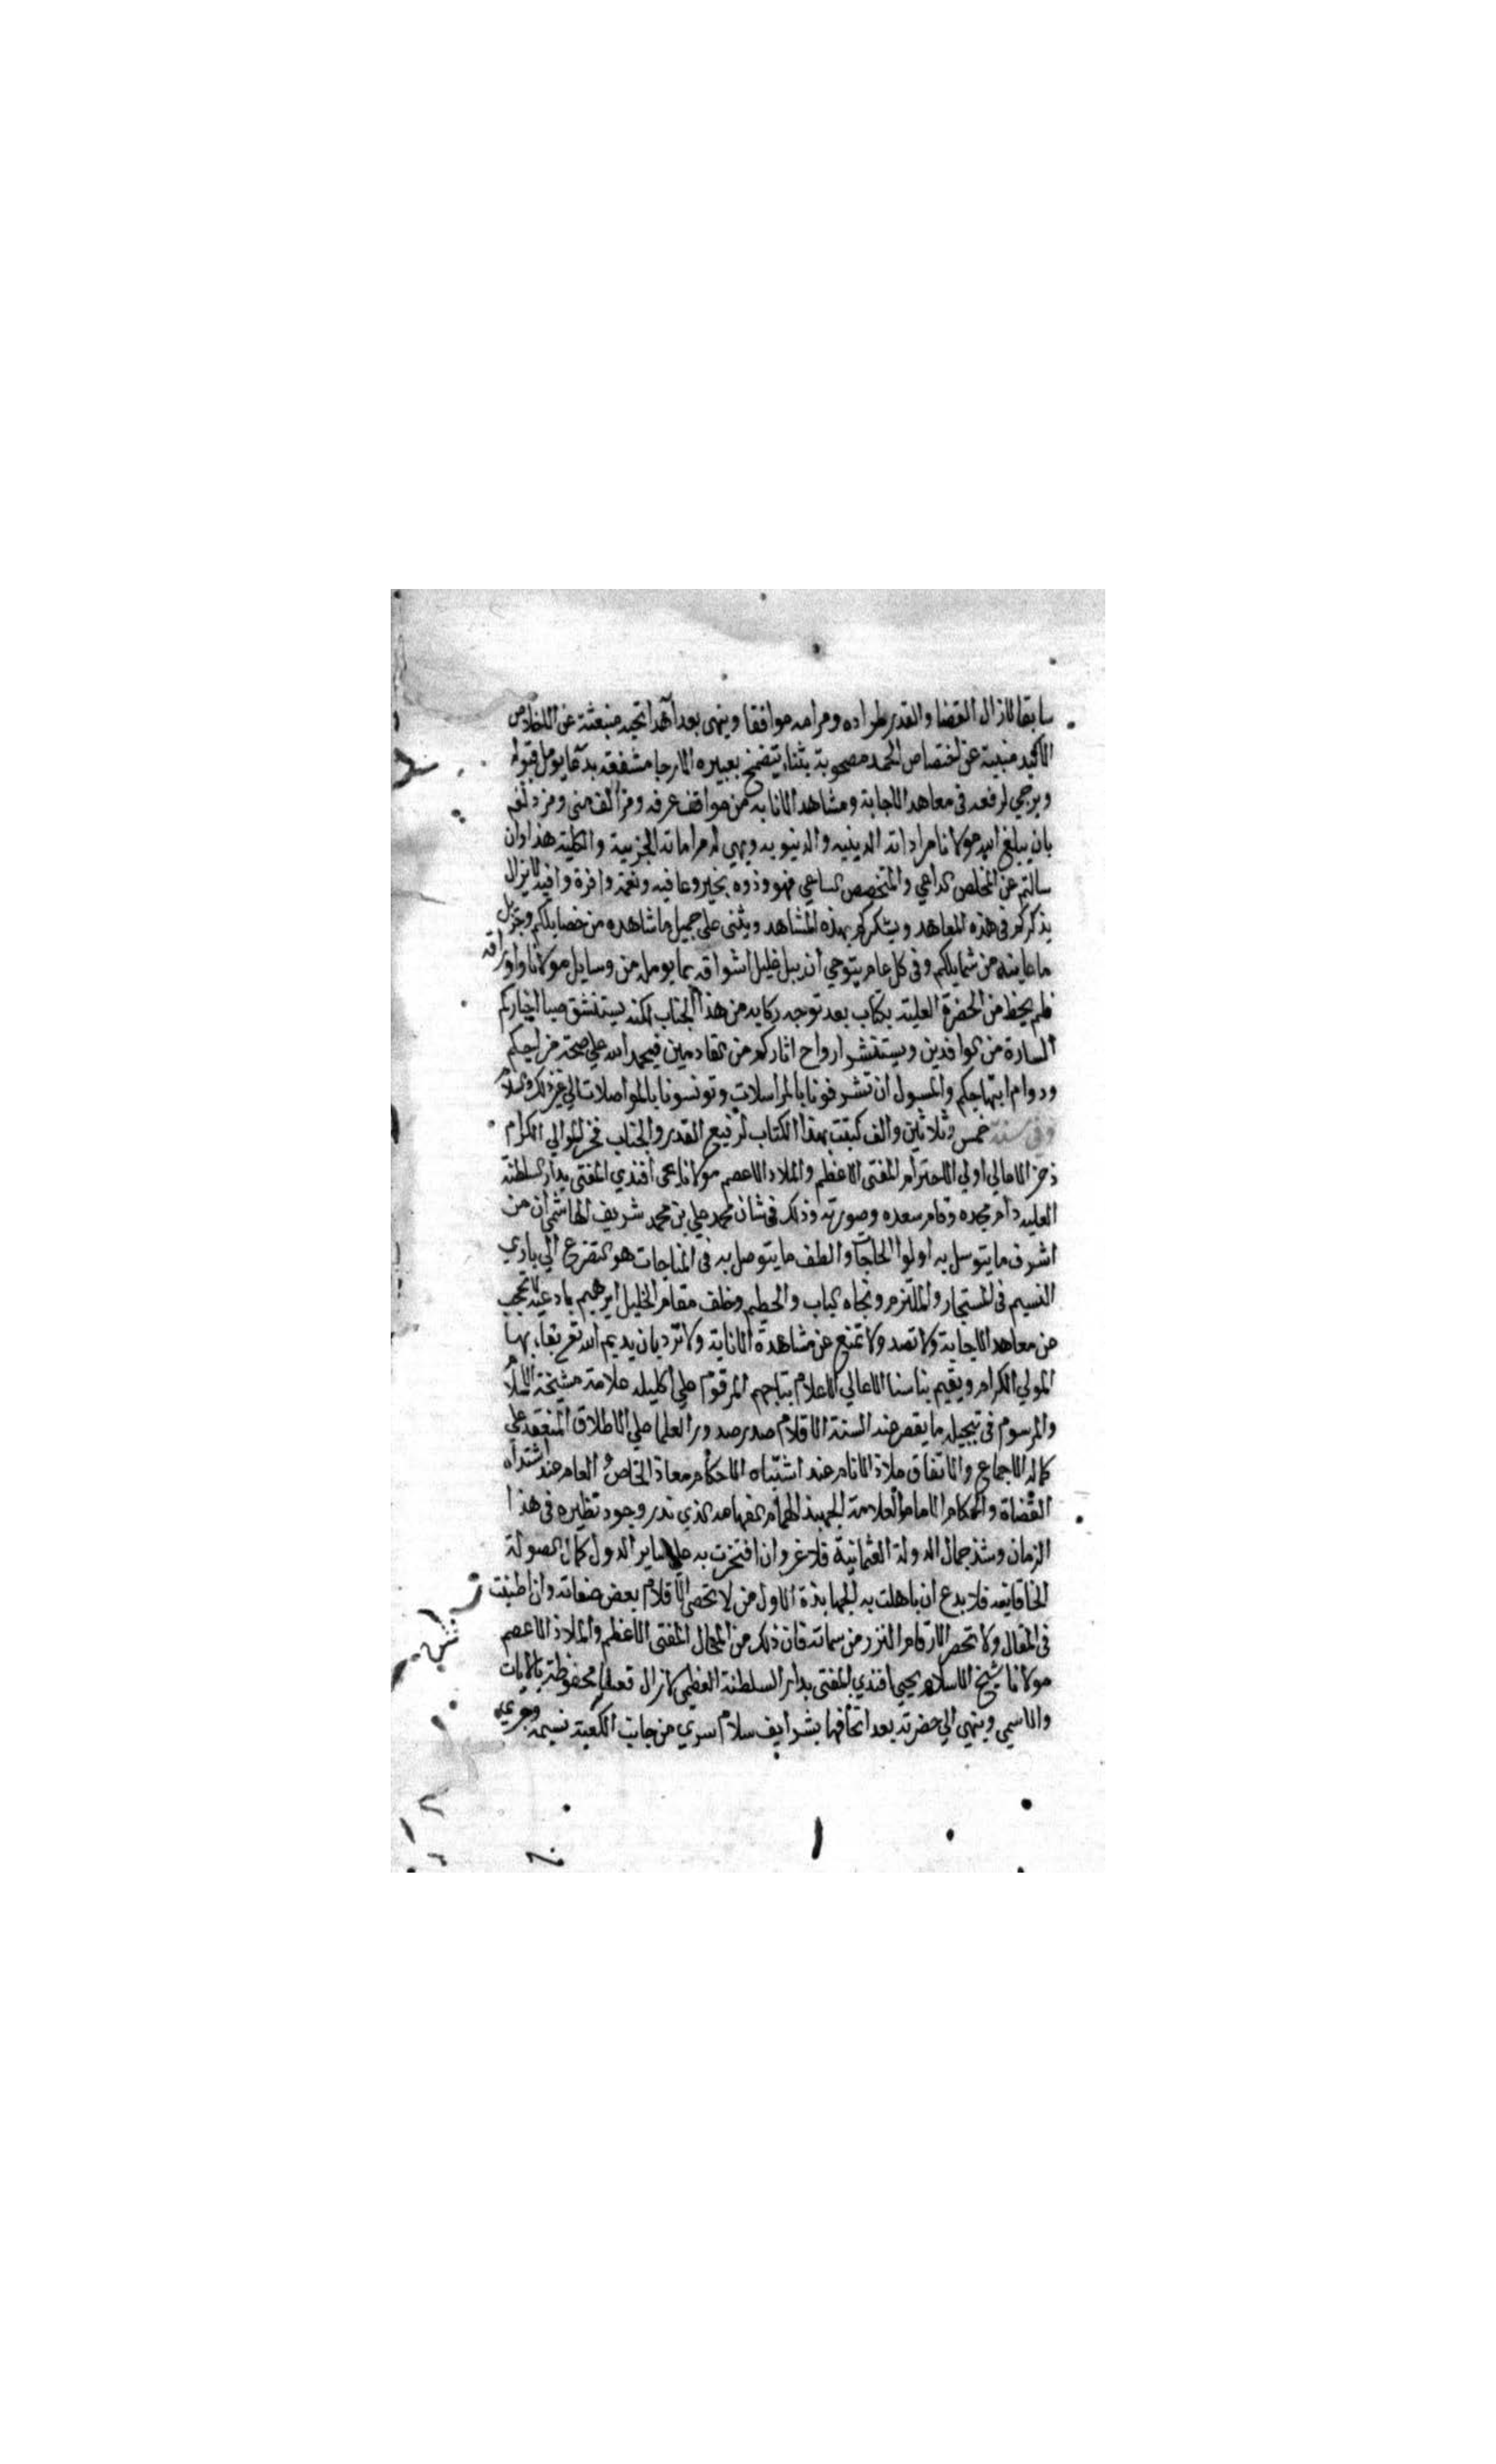 سابقا لازال القضا والقدر لمراده ومرامه موافقا وينهى بعد اهدا تحية منبعثة عن اخلاص
الاكيد منبية عن اختصاص الحمد مصحوبة بثناء يتضمخ بعبيره الارجا مشفعة بدعا يومل قبوله
ويرجي لرفعه في معاهد الاجابة ومشاهد الانابه من مواقف عرفه ومزالف منى ومزدلفه
بان يبلغ الله مولانا مراداته الدينيه والدنيويه ويهي له مراماته الجزيية والكلية هذا وان
سالتم عن المخلص الداعي والمتخصص الساعي فهو وذوه بخير وعافيه ونعمة وافرة وافيه لايزال
يذكركم في هذه المعاهد ويشكركم بهذه المشاهد ويثنى على جميل ما شاهده من خصايلكم وجزيل
ما عاينه من شمايلكم وفى كل عام يتوخى ان يبل غليل اشواقه بما يومله من وسايل مولانا واوراقه
فلم يحظ من الحضرة العلية بكتاب بعد توجه ركابه من هذا الجناب لكنه يستنشق صبا اخباركم
السارة من الوافدين ويستنشر ارواح اثاركم من القادمين فيحمد الله على صحة مزاجكم
ودوام ابتهاجكم والمسول ان تشرفونا بالمراسلات وتونسونا بالمواصلات الي غير ذلك والسلام
وفي سنة خمس وثلاثين والف كتبت بهذا الكتاب لرفيع القدر والجناب فخر الموالي الكرام
ذخر الاعالي اولي الاحترام المفتى الاعظم والملاذ الاعصم مولانا يحيى افندي المفتى بدار السلطنة
العليه دام مجده وقام سعده وصورته وذلك فى شان محمد علي بن محمد شريف الهاشمي ان من
اشرف ما يتوسل به اولوا الحاجات والطف ما يتوصل به فى المناجات هو التضرع الي باري
النسيم فى المستجار والملتزم وتجاه الباب والحطيم وخلف مقام الخليل ابرهيم بادعية لا تحجب
عن معاهد الاجابة ولا تصد ولا تمنع عن مشاهدة الانابة ولا ترد بان يديم الله تعالى بقاء بها
المولي الكرام ويقيم بنا سنا الاعالي الاعلام بتاجهم المرقوم علي اكليله علامة مشيخة الاسلام
والمرسوم فى تبجيله ما يقصر عنه السنة الاقلام صدر صدور العلما علي الاطلاق المنعقد علي
كماله الاجماع والاتفاق ملاذ الانام عند اشتباه الاحكام معاذ الخاص والعام عند اشتداه
القضاة والحكام الامام العلامة الجهبذ الهمام الفهامه الذي ندر وجود نظيره فى هذا
الزمان وشذ جمال الدولة العثمانية فلا غرو ان افتخرت به على ساير الدول كمال الصولة
الخاقانيه فلا بدع ان باهلت به الجهابذة الاول من لا تحصي الاقلام بعض صفاته وان اطنبت
فى المقال ولا تحصر الارقام النزر من سماته فان ذلك من المحال المفتى الاعظم والملاذ الاعصم
مولانا شيخ الاسلام يحيى افندي المفتى بدار السلطنة العظمى لازال محفوظة بالايات
والاسامي وينهي الي حضرته بعد اتحافها بشرايف سلام سري من جانب الكعبة نسيمه وجري